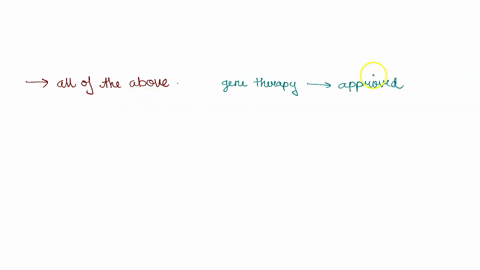 → all of the above. gene therapy → approved